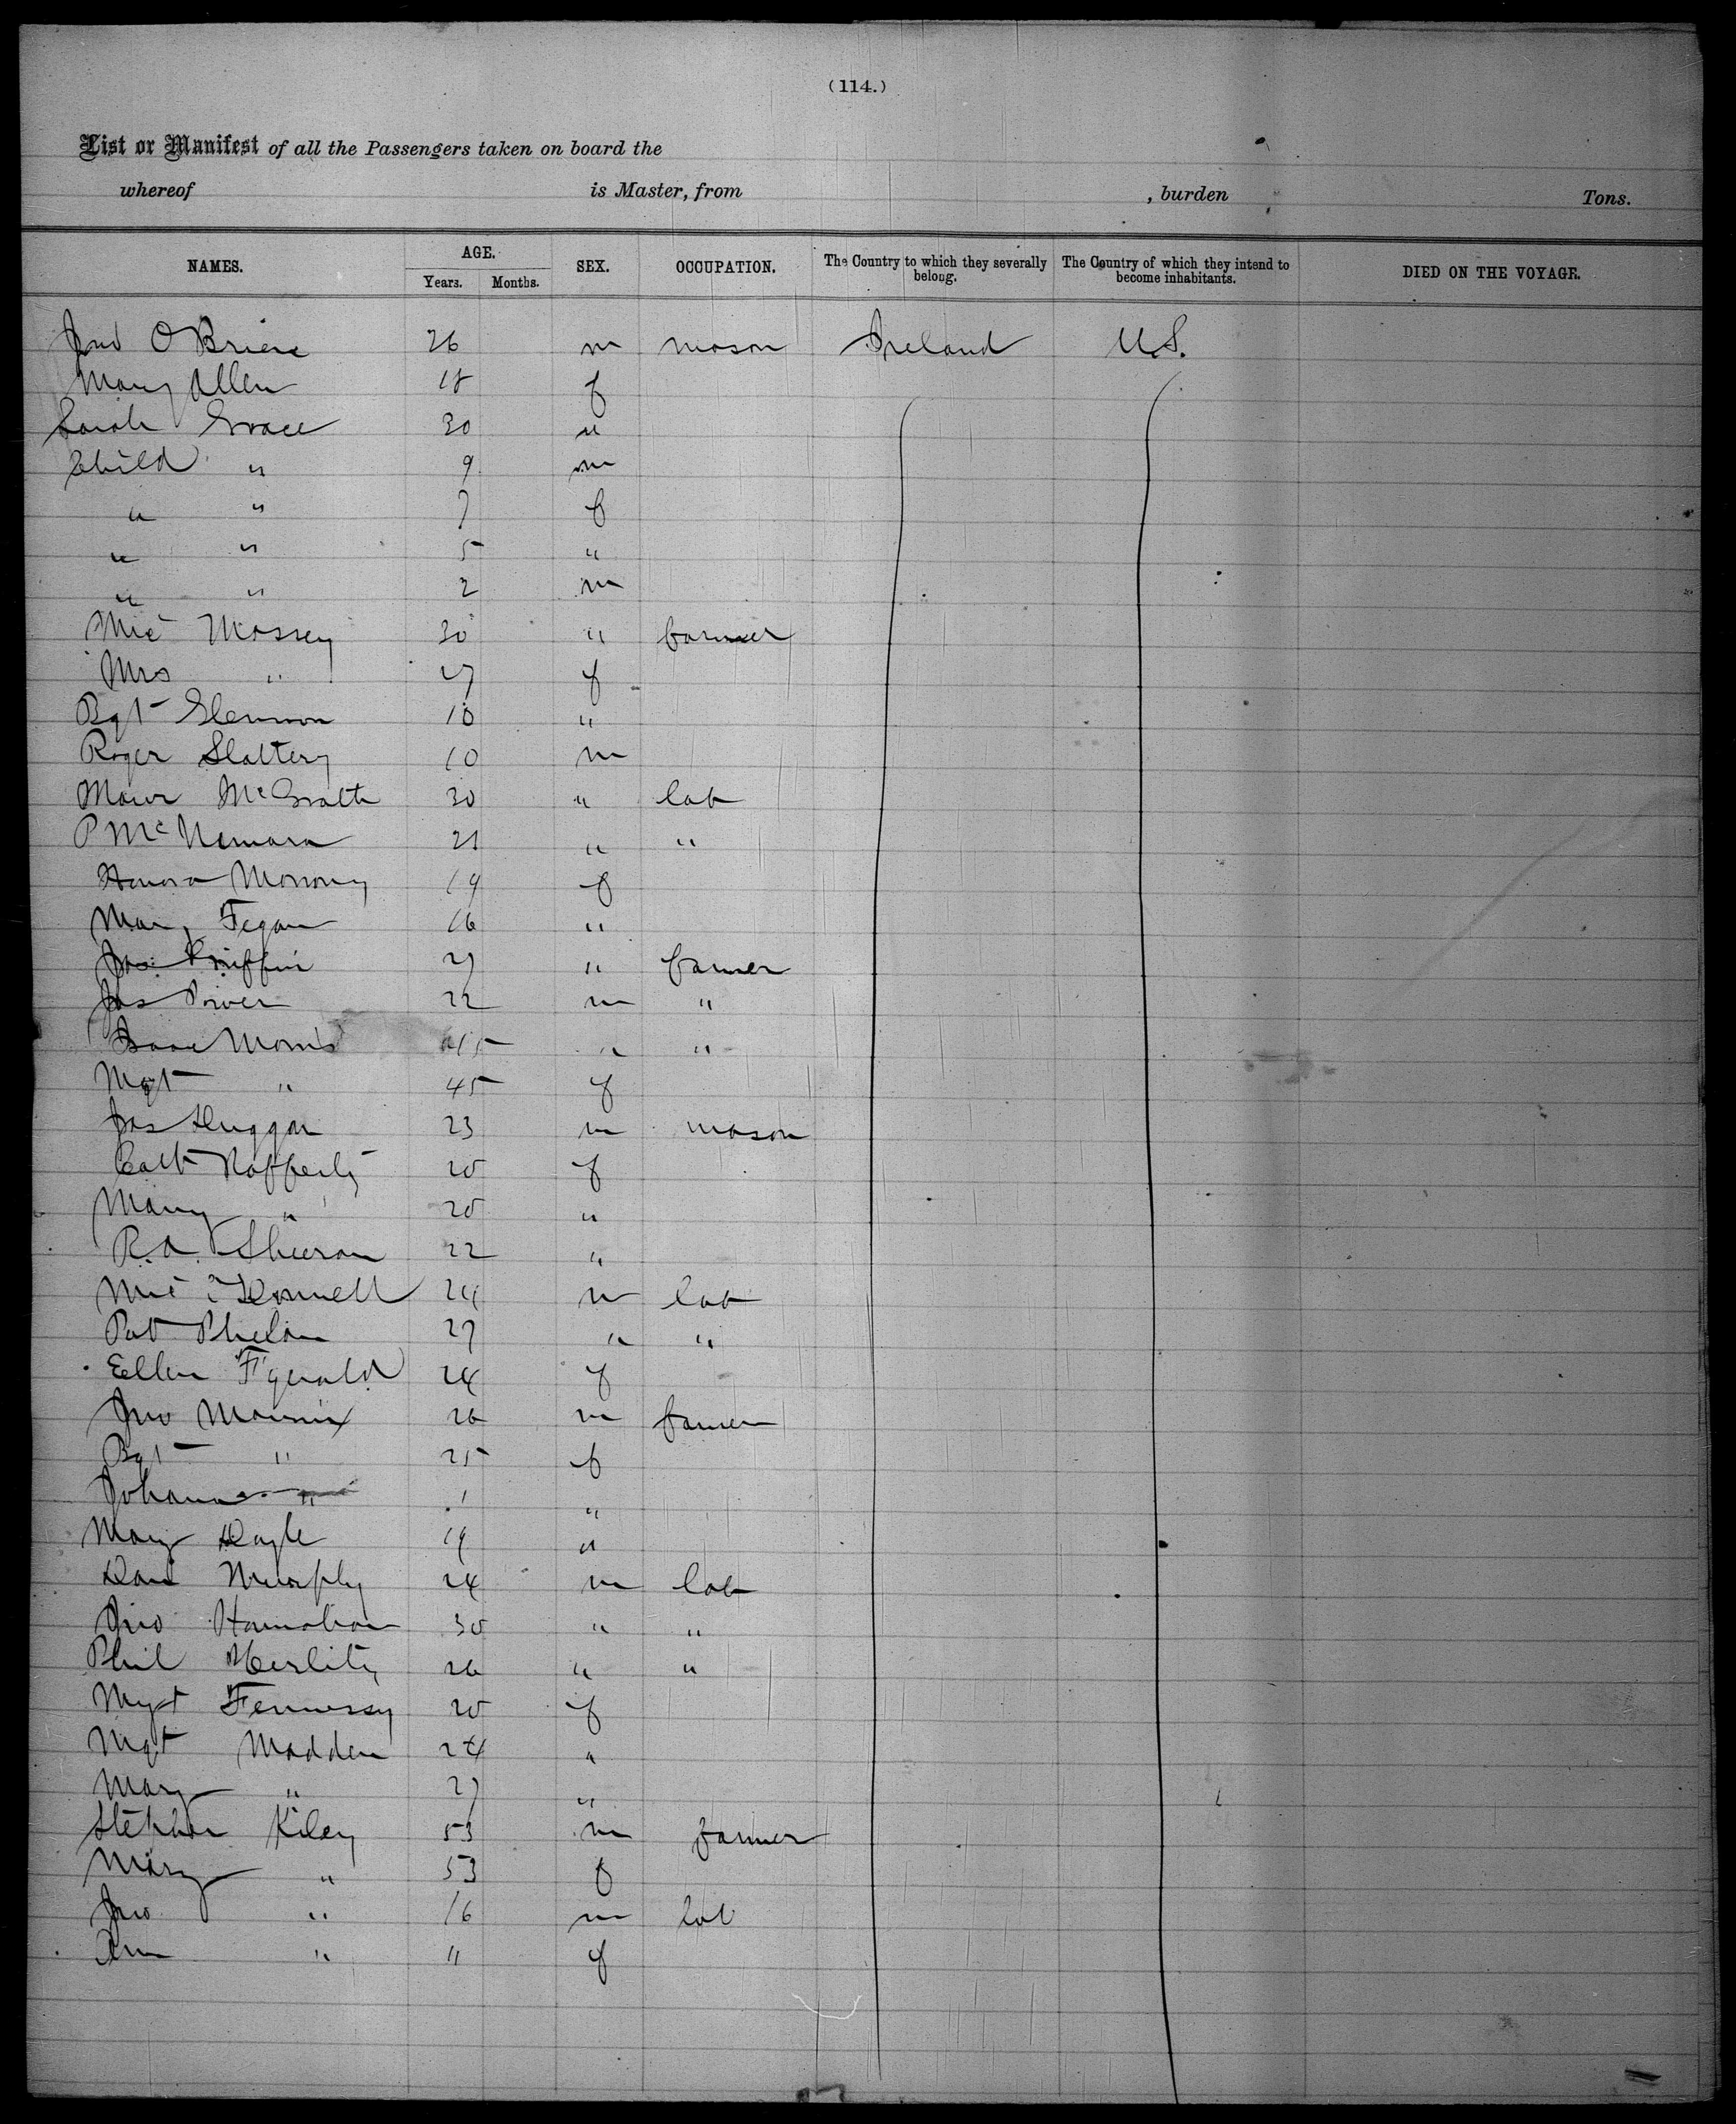 (114.)
List or Manifest of all the Passengers taken on board the
whereof is Master, from , burden Tons.
NAMES. AGE. Years. Months. SEX. OCCUPATION. The Country to which they severally belong. The Country of which they intend to become inhabitants. DIED ON THE VOYAGE.
Jno O'Brien 26 m mason Ireland U.S.
Mary Allen 18 f
Sarah Grace 30 "
Child " 9 m
" " 7 f
" " 5 "
" " 2 m
Mic Massey 30 " farmer
Mrs " 27 f
Bgt Glennon 18 "
Roger Slattery 10 m
Maur McGrath 30 " lab
P McNamara 21 " "
Honora Moroney 19 f
Mary Fegan 16 "
Jas Griffin 27 " farmer
Jas Power 22 m "
Isaac Morris 45 " "
Mgt " 45 f
Jas Duggan 23 m mason
Cath Rafferty 20 f
Mary " 20 "
R.A. Sheeran 22 "
Mic O'Donnell 24 m lab
Pat Phelan 27 " "
Ellen F'gerald 24 f
Jno Mannix 26 m farmer
Bgt " 25 f
Johanna " 1 "
Mary Doyle 19 "
Danl Murphy 24 m lab
Jno Hanrahan 30 " "
Phil Herlity 26 " "
Mgt Fennessy 20 f
Mgt Madden 24 "
Mary " 27 "
Stephen Kiley 53 m farmer
Mary " 53 f
Jno " 16 m lab
Ann " 11 f